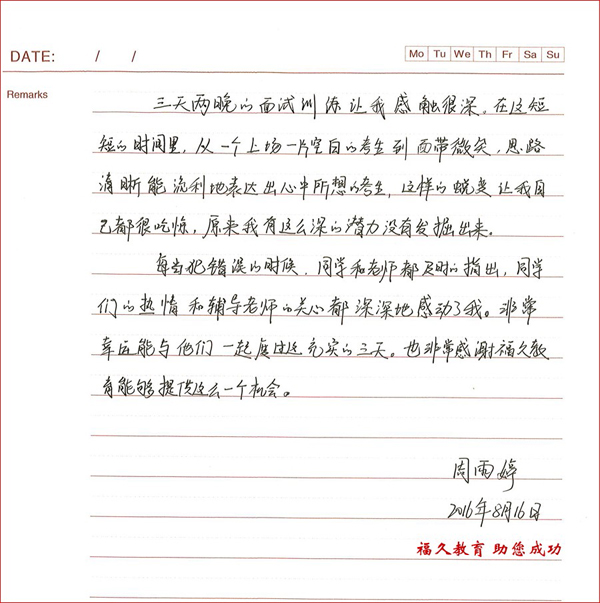 DATE: / /
Mo Tu We Th Fr Sa Su
Remarks
三天两晚的面试训练让我感触很深。在这短
短的时间里，从一个上场一片空白的考生到面带微笑，思路
清晰能流利地表达出心中所想的考生，这样的蜕变让我自
己都很吃惊，原来我有这么深的潜力没有发掘出来。
每当犯错误的时候，同学和老师都及时的指出，同学
们的热情和辅导老师的关心都深深地感动了我。非常
幸运能与他们一起度过这充实的三天。也非常感谢福久教
育能够提供这么一个机会。
周雨婷
2016年8月16日
福久教育 助您成功